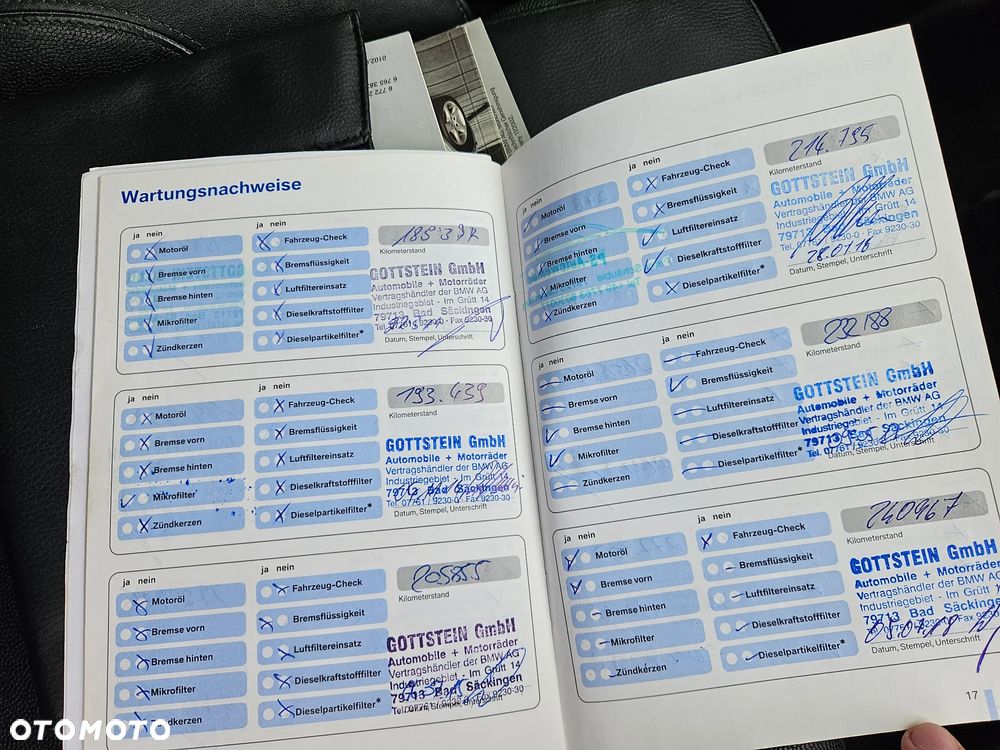 6 772 2
6 765 38
0102.
Wartungsnachweise
ja nein
ja nein
Motoröl
Fahrzeug-Check
Bremse vorn
Bremsflüssigkeit
Bremse hinten
Luftfiltereinsatz
Mikrofilter
Dieselkraftstofffilter
Zündkerzen
Dieselpartikelfilter*
Kilometerstand
GOTTSTEIN GmbH
Automobile + Motorräder
Vertragshändler der BMW AG
Industriegebiet - Im Grütt 14
79713 Bad Säckingen
Tel. 07761 / 9230-0 · Fax 9230-30
Datum, Stempel, Unterschrift
ja nein
ja nein
Motoröl
Fahrzeug-Check
Bremse vorn
Bremsflüssigkeit
Bremse hinten
Luftfiltereinsatz
Mikrofilter
Dieselkraftstofffilter
Zündkerzen
Dieselpartikelfilter*
193.439
Kilometerstand
GOTTSTEIN GmbH
Automobile + Motorräder
Vertragshändler der BMW AG
Industriegebiet - Im Grütt 14
79713 Bad Säckingen
Tel. 07761 / 9230-0 · Fax 9230-30
Datum, Stempel, Unterschrift
ja nein
ja nein
Motoröl
Fahrzeug-Check
Bremse vorn
Bremsflüssigkeit
Bremse hinten
Luftfiltereinsatz
Mikrofilter
Dieselkraftstofffilter
Zündkerzen
Dieselpartikelfilter*
205855
Kilometerstand
GOTTSTEIN GmbH
Automobile + Motorräder
Vertragshändler der BMW AG
Industriegebiet - Im Grütt 14
79713 Bad Säckingen
Tel. 07761 / 9230-0 · Fax 9230-30
Datum, Stempel, Unterschrift
ja nein
ja nein
Motoröl
Fahrzeug-Check
Bremse vorn
Bremsflüssigkeit
Bremse hinten
Luftfiltereinsatz
Mikrofilter
Dieselkraftstofffilter
Zündkerzen
Dieselpartikelfilter*
214.795
Kilometerstand
GOTTSTEIN GmbH
Automobile + Motorräder
Vertragshändler der BMW AG
Industriegebiet - Im Grütt 14
79713 Bad Säckingen
Tel. 07761 / 9230-0 · Fax 9230-30
28.01.16
Datum, Stempel, Unterschrift
ja nein
ja nein
Motoröl
Fahrzeug-Check
Bremse vorn
Bremsflüssigkeit
Bremse hinten
Luftfiltereinsatz
Mikrofilter
Dieselkraftstofffilter
Zündkerzen
Dieselpartikelfilter*
232188
Kilometerstand
GOTTSTEIN GmbH
Automobile + Motorräder
Vertragshändler der BMW AG
Industriegebiet - Im Grütt 14
79713 Bad Säckingen
Tel. 07761 / 9230-0 · Fax 9230-30
Datum, Stempel, Unterschrift
ja nein
ja nein
Motoröl
Fahrzeug-Check
Bremse vorn
Bremsflüssigkeit
Bremse hinten
Luftfiltereinsatz
Mikrofilter
Dieselkraftstofffilter
Zündkerzen
Dieselpartikelfilter*
240967
Kilometerstand
GOTTSTEIN GmbH
Automobile + Motorräder
Vertragshändler der BMW AG
Industriegebiet - Im Grütt 14
79713 Bad Säckingen
Datum, Stempel, Unterschrift
17
OTOMOTO